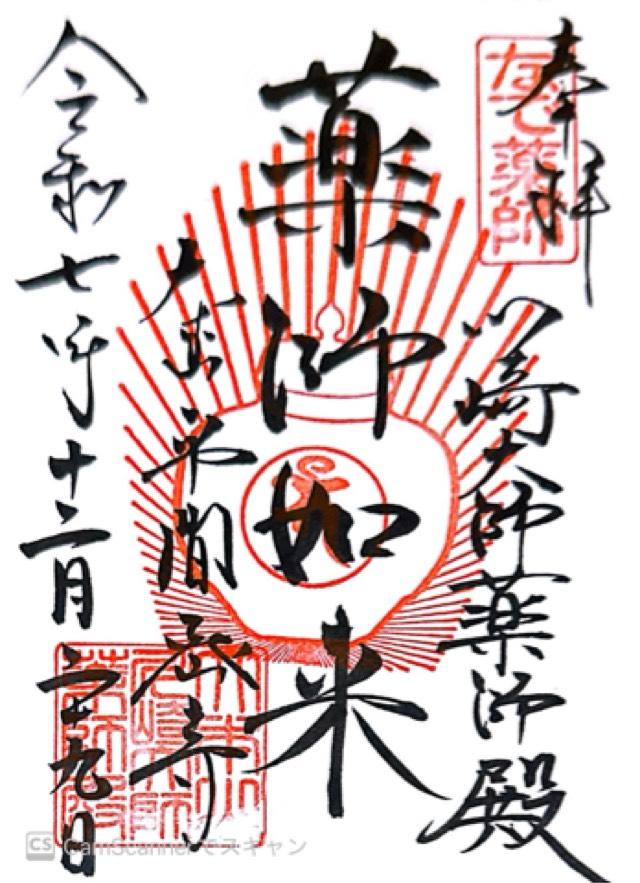 奉拝
なで薬師
川崎大師薬師殿
薬師如来
大本山平間密寺
令和七年十二月二十九日
CS CamScannerでスキャン